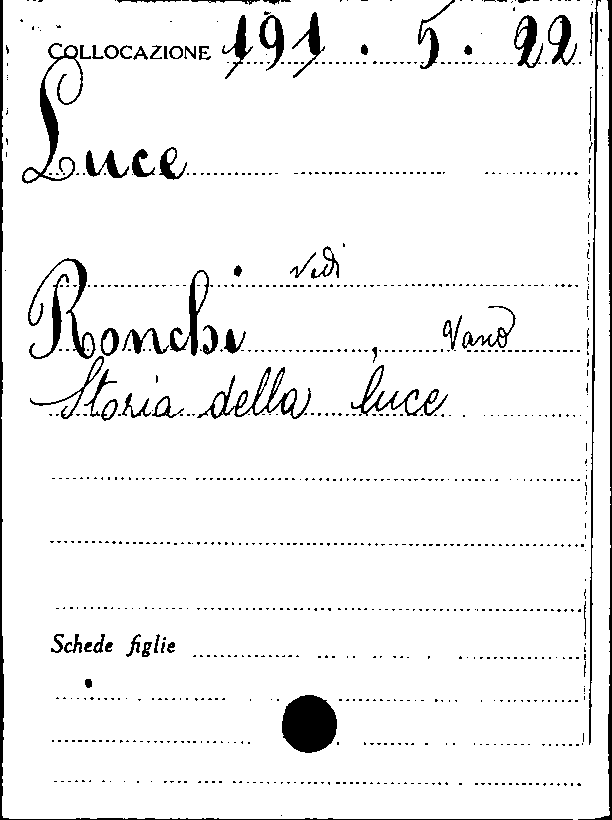 COLLOCAZIONE 191. 5. 22
Luce
vedi
Ronchi, Vasco
Storia della luce
Schede figlie